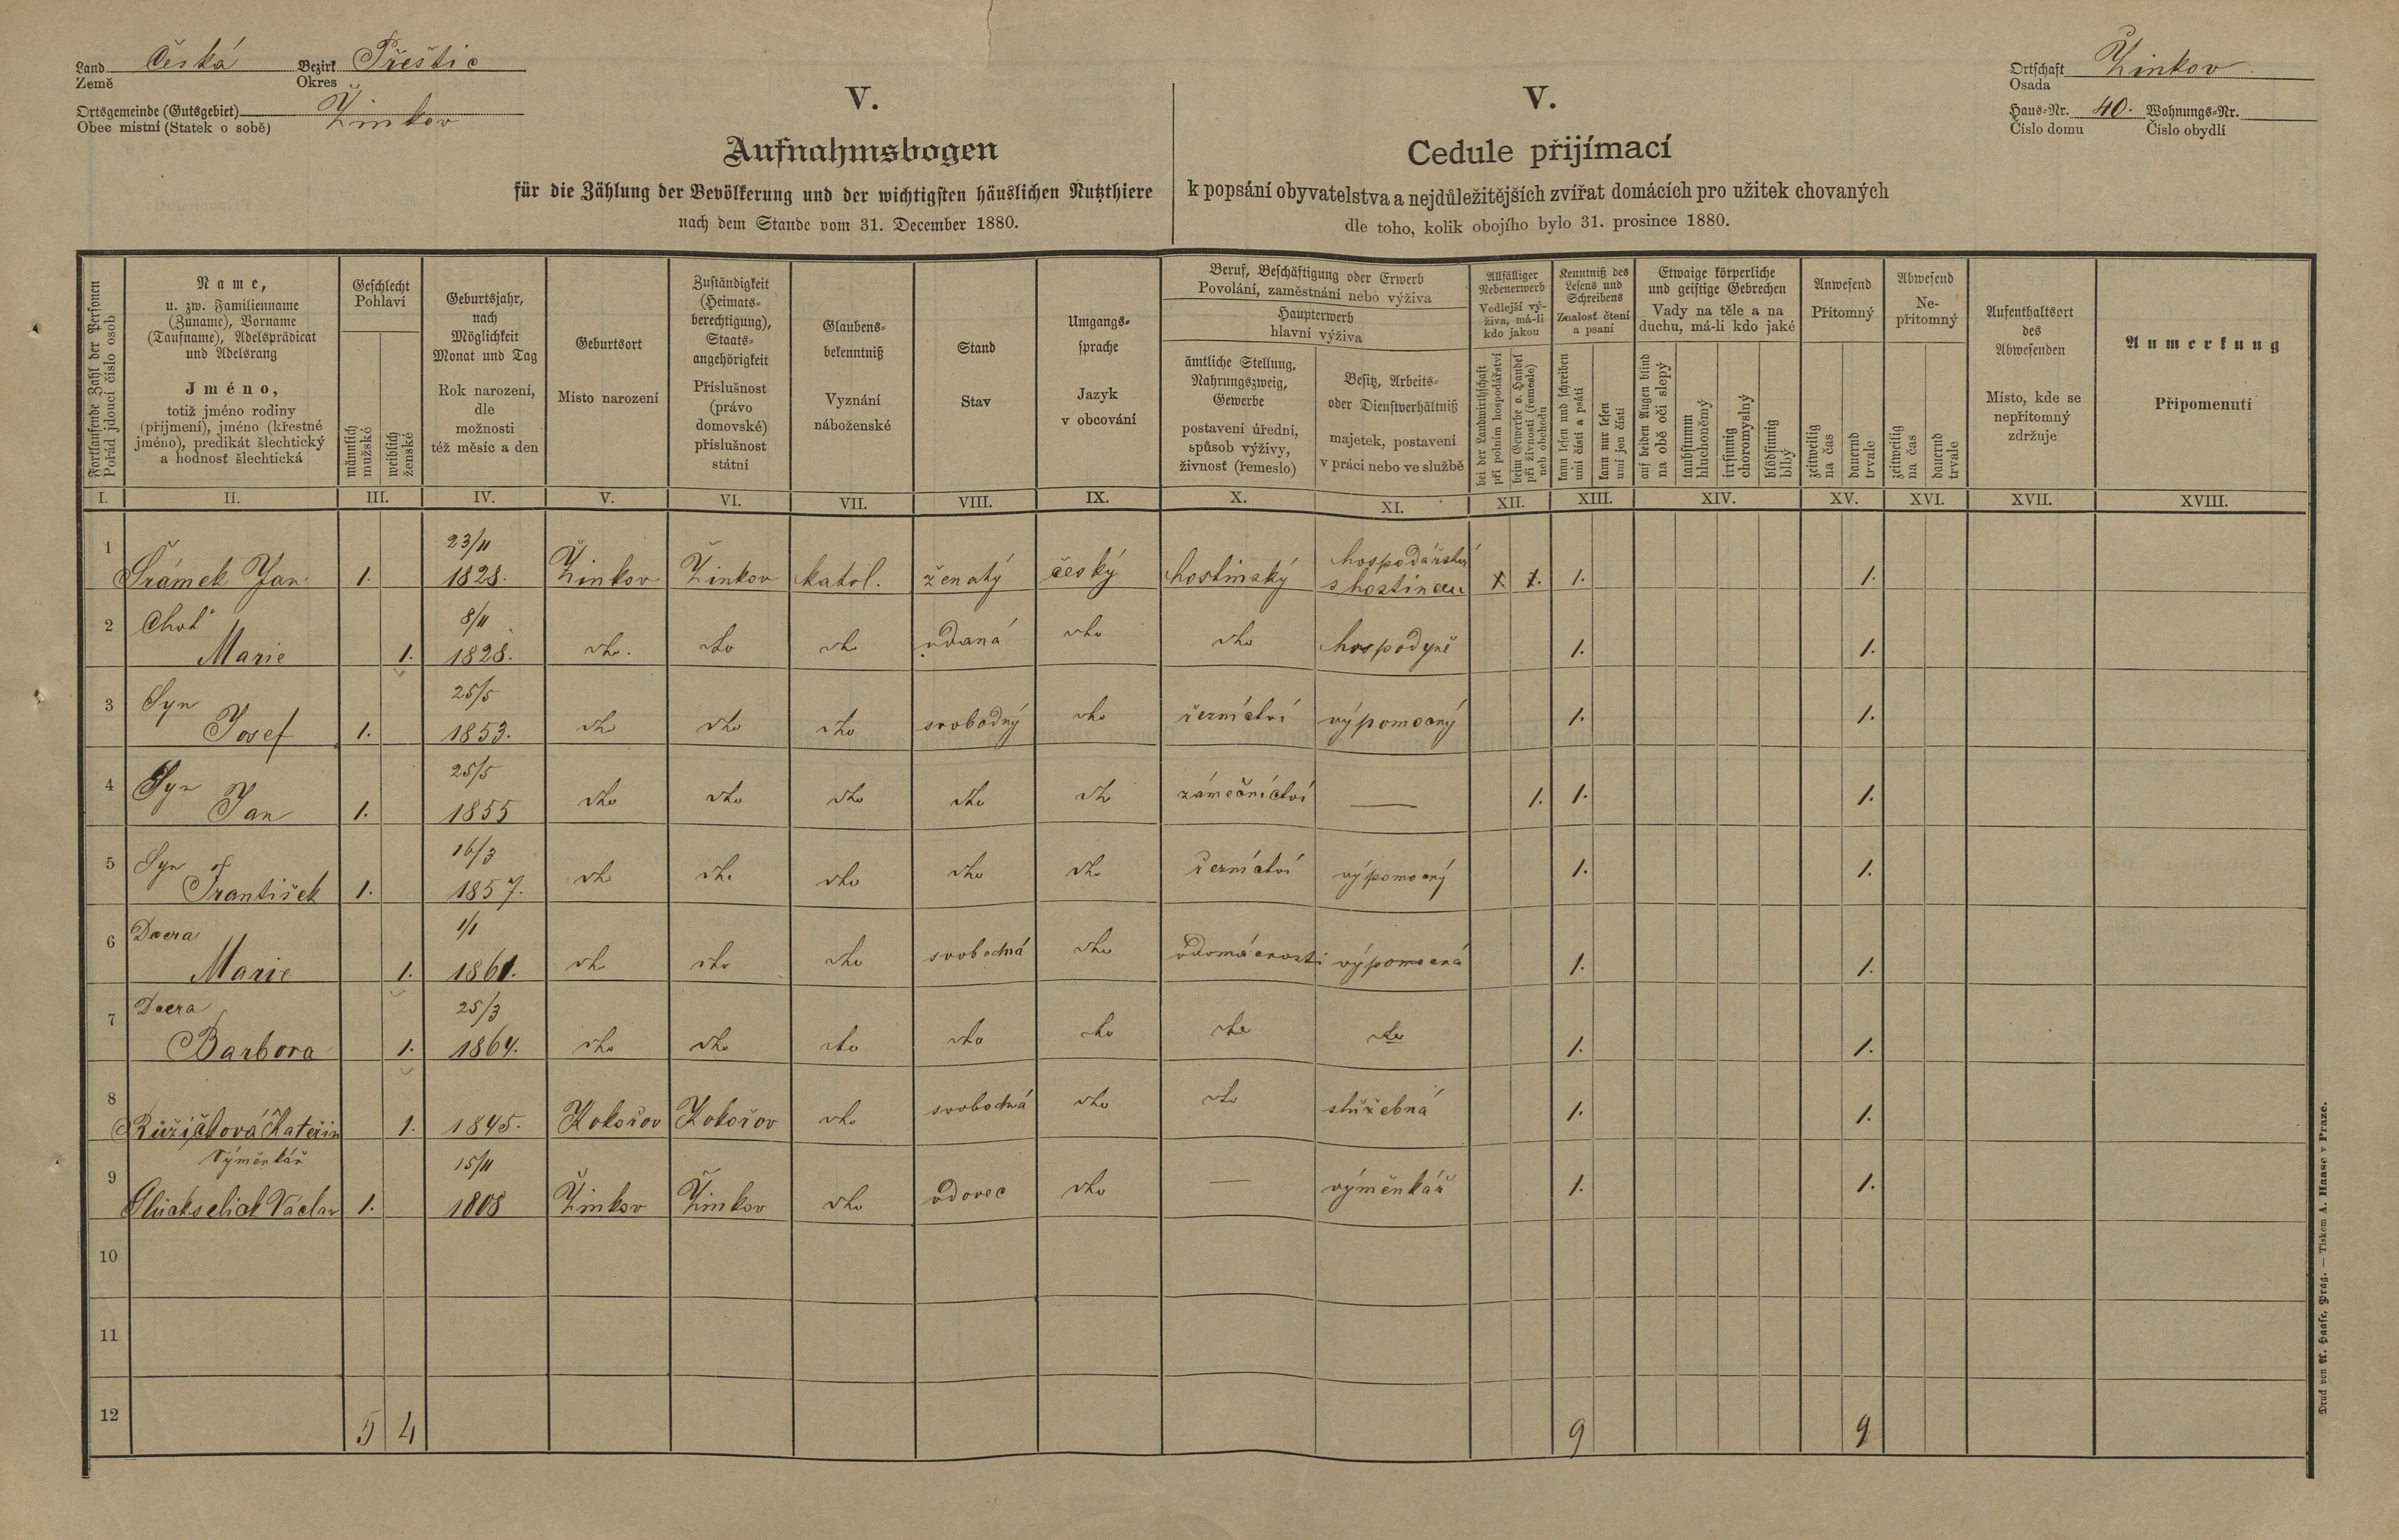 Land Česká Bezirk Přeštic
Země Okres
Ortsgemeinde (Gutsgebiet) Žinkov
Obec místní (Statek o sobě)
Ortschaft Žinkov
Osada
Haus-Nr. 40. Wohnungs-Nr.
Číslo domu Číslo obydlí
V.
Aufnahmsbogen
für die Zählung der Bevölkerung und der wichtigsten häuslichen Nutzthiere
nach dem Stande vom 31. December 1880.
V.
Cedule přijímací
k popsání obyvatelstva a nejdůležitějších zvířat domácích pro užitek chovaných
dle toho, kolik obojího bylo 31. prosince 1880.
Fortlaufende Zahl der Personen
Pořád jdoucí číslo osob
Name,
u. zw. Familienname
(Zuname), Vorname
(Taufname), Adelsprädicat
und Adelsrang
Jméno,
totiž jméno rodiny
(příjmení), jméno (křestné
jméno), predikát šlechtický
a hodnost šlechtická
Geschlecht
Pohlaví
männlich
mužské
weiblich
ženské
Geburtsjahr,
nach
Möglichkeit
Monat und Tag
Rok narození,
dle
možnosti
též měsíc a den
Geburtsort
Místo narození
Zuständigkeit
(Heimats-
berechtigung),
Staats-
angehörigkeit
Příslušnost
(právo
domovské)
příslušnost
státní
Glaubens-
bekenntniß
Vyznání
náboženské
Stand
Stav
Umgangs-
sprache
Jazyk
v obcování
Beruf, Beschäftigung oder Erwerb
Povolání, zaměstnání nebo výživa
Haupterwerb
hlavní výživa
ämtliche Stellung,
Nahrungszweig,
Gewerbe
postavení úřední,
spůsob výživy,
živnost (řemeslo)
Besitz, Arbeits-
oder Dienstverhältniß
majetek, postavení
v práci nebo ve službě
Allfälliger
Nebenerwerb
Vedlejší vý-
živa, má-li
kdo jakou
bei der Landwirthschaft
při polním hospodářství
beim Gewerbe o. Handel
při živnosti (řemesle)
neb obchodu
Kenntniß des
Lesens und
Schreibens
Znalost čtení
a psaní
kann lesen und schreiben
umí čísti a psáti
kann nur lesen
umí jen čísti
Etwaige körperliche
und geistige Gebrechen
Vady na těle a na
duchu, má-li kdo jaké
auf beiden Augen blind
na obě oči slepý
taubstumm
hluchoněmý
irrsinnig
choromyslný
blödsinnig
blbý
Anwesend
Přítomný
zeitweilig
na čas
dauernd
trvale
Abwesend
Ne-
přítomný
zeitweilig
na čas
dauernd
trvale
Aufenthaltsort
des
Abwesenden
Místo, kde se
nepřítomný
zdržuje
Anmerkung
Připomenutí
I. II. III. IV. V. VI. VII. VIII. IX. X. XI. XII. XIII. XIV. XV. XVI. XVII. XVIII.
1 23/11 hospodářství
Šrámek Jan 1. 1828. Žinkov Žinkov katol. ženatý český hostinský s hostincem 1. 1. 1.
2 Choť 8/11
Marie 1. 1828. dto. dto dto vdaná dto dto hospodyně 1. 1.
3 Syn 25/5
Josef 1. 1853. dto dto dto svobodný dto řeznictví výpomocný 1. 1.
4 Syn 25/5
Jan 1. 1855 dto dto dto dto dto zámečnictví — 1. 1. 1.
5 Syn 16/3
František 1. 1857. dto dto dto dto dto řeznictví výpomocný 1. 1.
6 Dcera 1/1
Marie 1. 1861. dto dto dto svobodná dto v domácnosti výpomocná 1. 1.
7 Dcera 25/3
Barbora 1. 1864. dto dto dto dto dto dto dto 1. 1.
8
Růžičková Kateřin 1. 1845. Kokořov Kokořov dto svobodná dto dto služebná 1. 1.
9 Výměnkář 15/11
Glückselich Václav 1. 1808 Žinkov Žinkov dto vdovec dto — výměnkář 1. 1.
10
11
12 5 4 9 9
Druck von A. Haase, Prag. — Tiskem A. Haase v Praze.